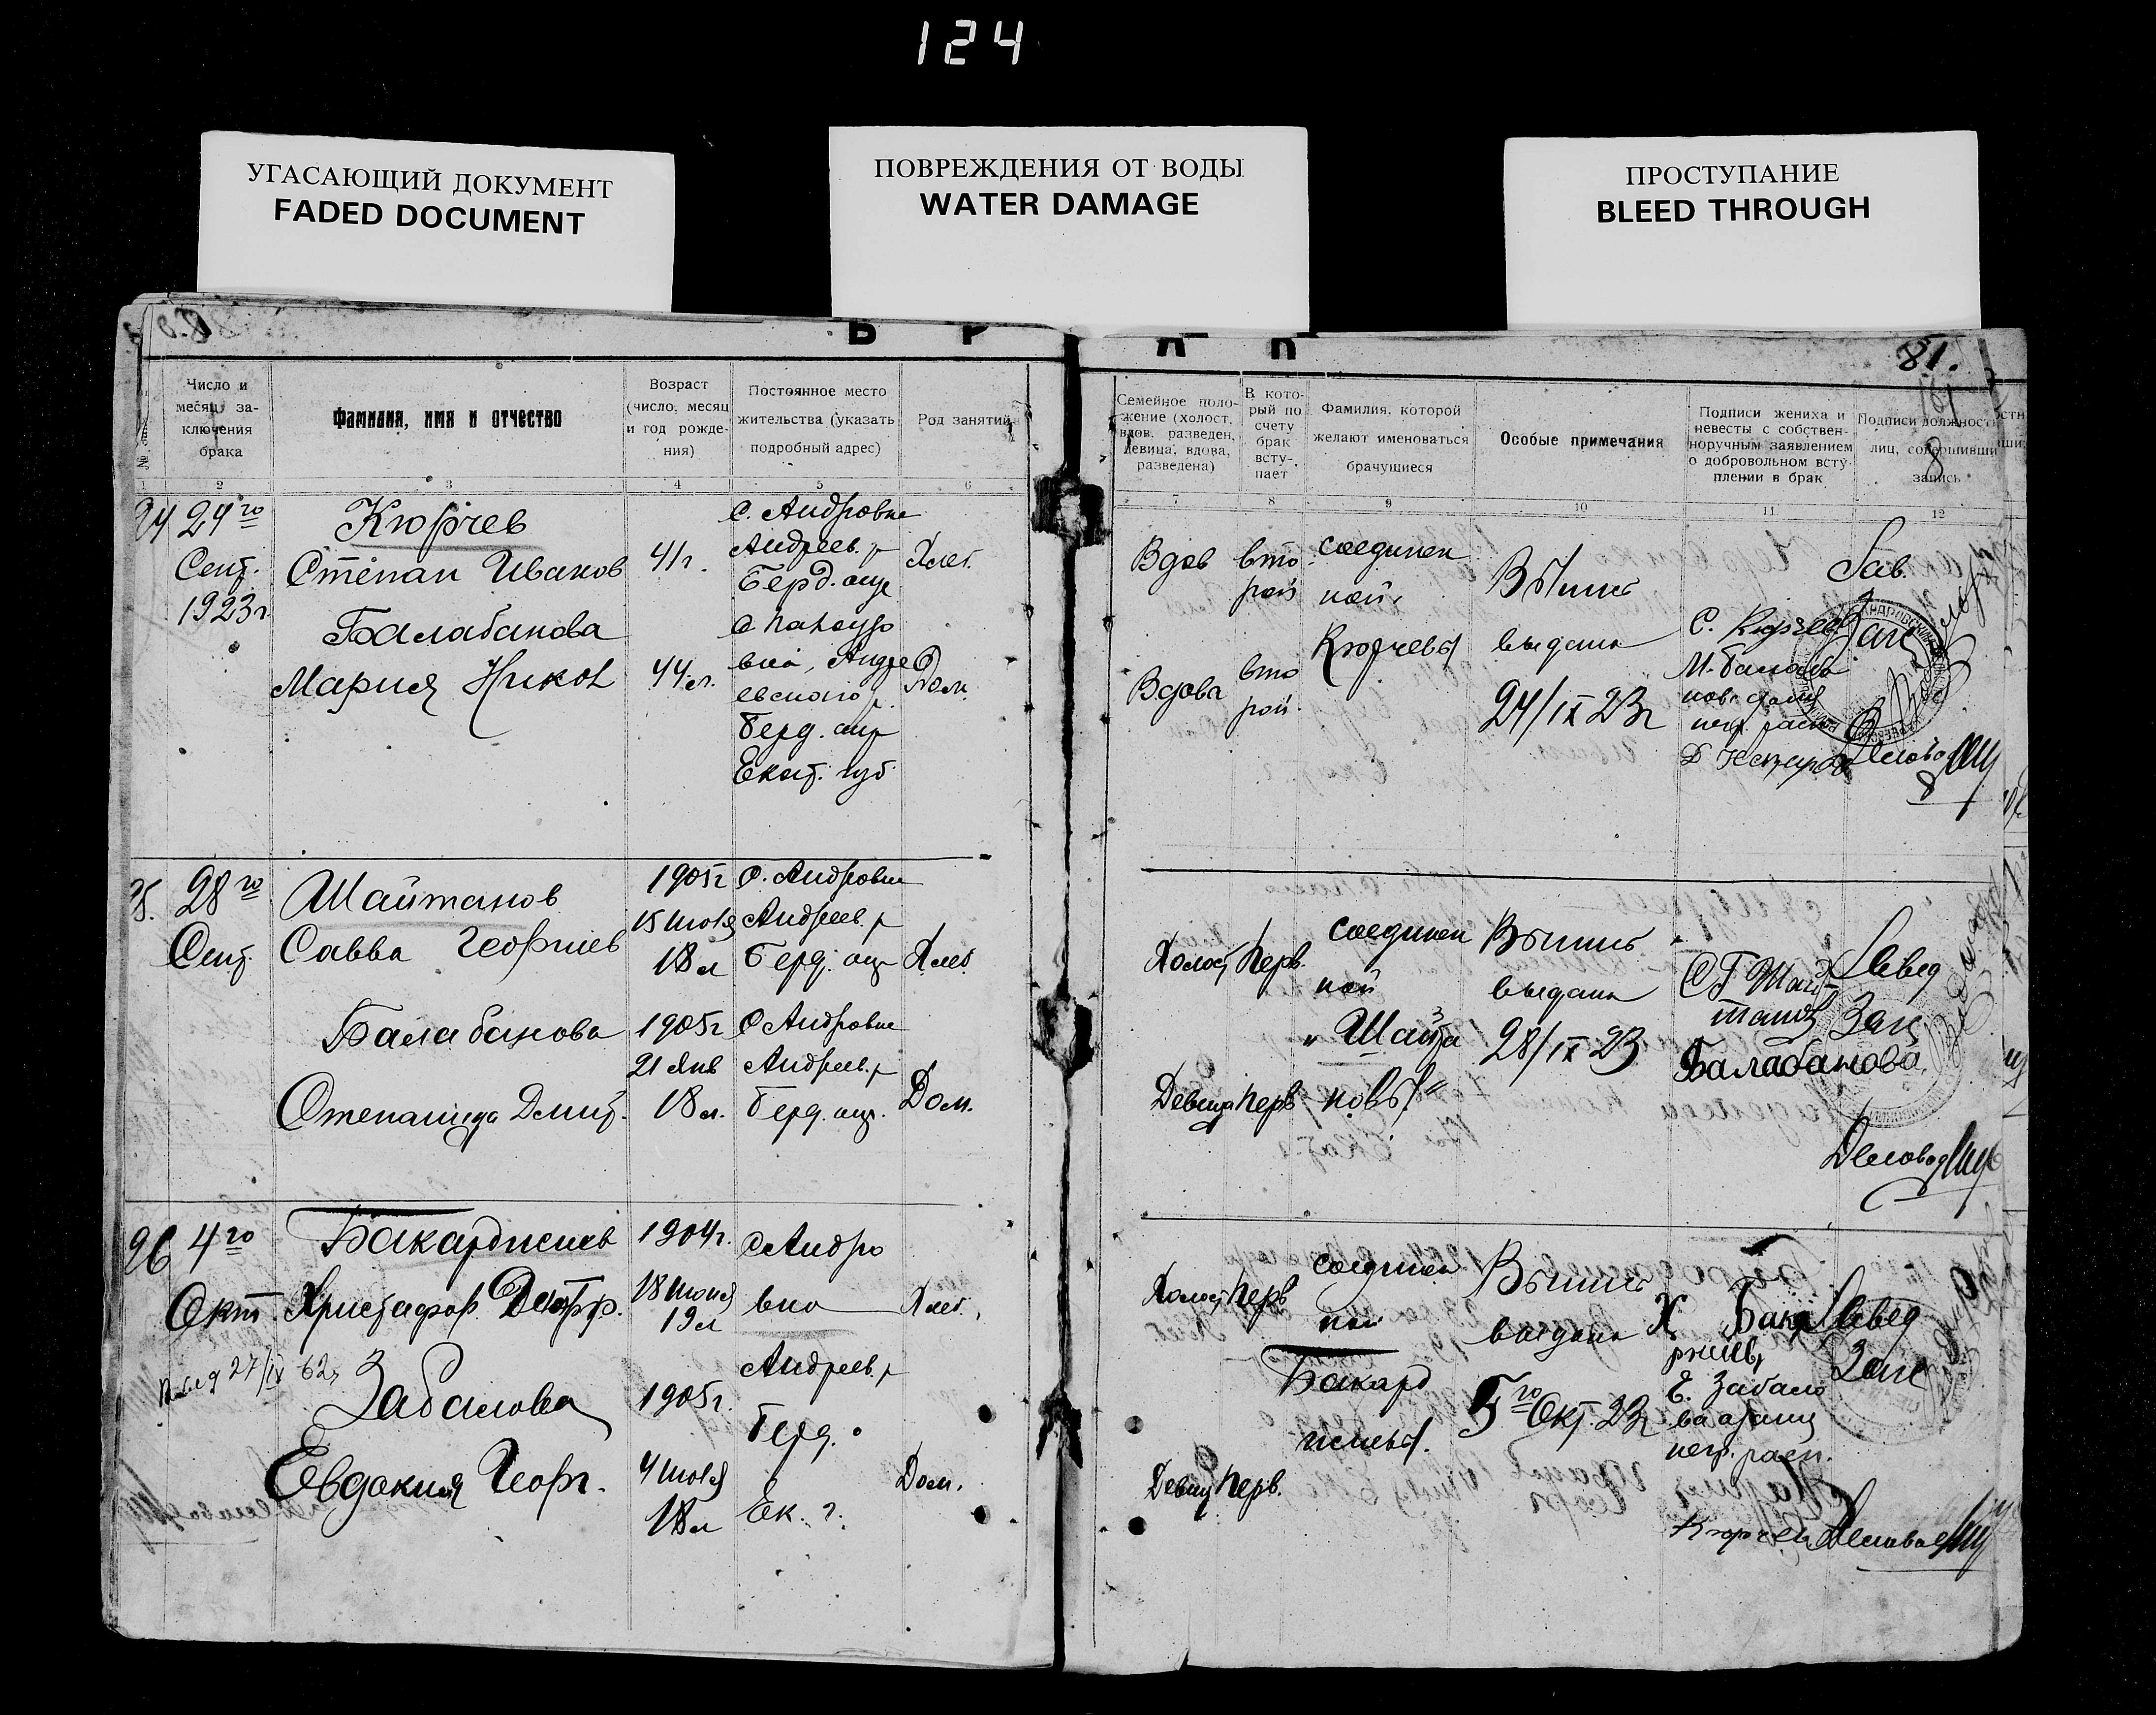 124
УГАСАЮЩИЙ ДОКУМЕНТ
FADED DOCUMENT
ПОВРЕЖДЕНИЯ ОТ ВОДЫ
WATER DAMAGE
ПРОСТУПАНИЕ
BLEED THROUGH
Б Р А К
81.
Число и месяц заключения брака
Фамилия, имя и отчество
Возраст (число, месяц и год рождения)
Постоянное место жительства (указать подробный адрес)
Род занятий
1 2 3 4 5 6
24 24го
Сент.
1923г.
Кюрчев
Степан Иванов
41г.
С. Андровке
Андреев. р
Берд. окр
Хлеб.
Балабанова
Мария Никол
44л.
вка, Андре
евского р.
Берд. окр
Екат. губ
Дом.
25. 28го
Сент.
Шайтанов
Савва Георгиев
1905г
15 Июля
18л
С. Андровке
Андреев. р
Берд. окр
Хлеб.
Балабанова
Степанида Дмит.
1905г
21 Янв
18л.
С Андровке
Андреев. р
Берд. окр.
Дом.
26 4го
Окт.
Бакарджиев
Христофор
1904г.
18 Июня
19л
С Андро
вка
Хлеб.
27/IV 62г
Забалова
Евдокия Георг.
1905г.
4 Июля
18л
Андреев. р
Берд.
Ек. г.
Дом.
Семейное положение (холост, вдов, разведен, девица, вдова, разведена)
В который по счету брак вступает
Фамилия, которой желают именоваться брачущиеся
Особые примечания
Подписи жениха и невесты с собственноручным заявлением о добровольном вступлении в брак
Подписи должност
лиц, совершивши
запись
7 8 9 10 11 12
Вдов вто
рой
соединен
ной
Кюрчевы
Вдова вто
рой.
Выпись
выдана
24/IX 23г
С. Кюрчев
М. Балаба
нова
негр. расп
Зав.
Загс
Делов
Холост Перв.
соединен
ной
„Шайта
новы"
Девица Перв
Выпись
выдана
28/IX 23
С Г Шай
танов
Балабанова
Завед
Загс
Деловод
Холост Перв
соединен
ной
Бакард
жиевы.
Девиц Перв.
Выпись
выдана
5го Окт. 23г
Х Бака
ржиев
Е. Забало
ва
негр. расп.
Кюрчев
Завед
Загс
Деловод